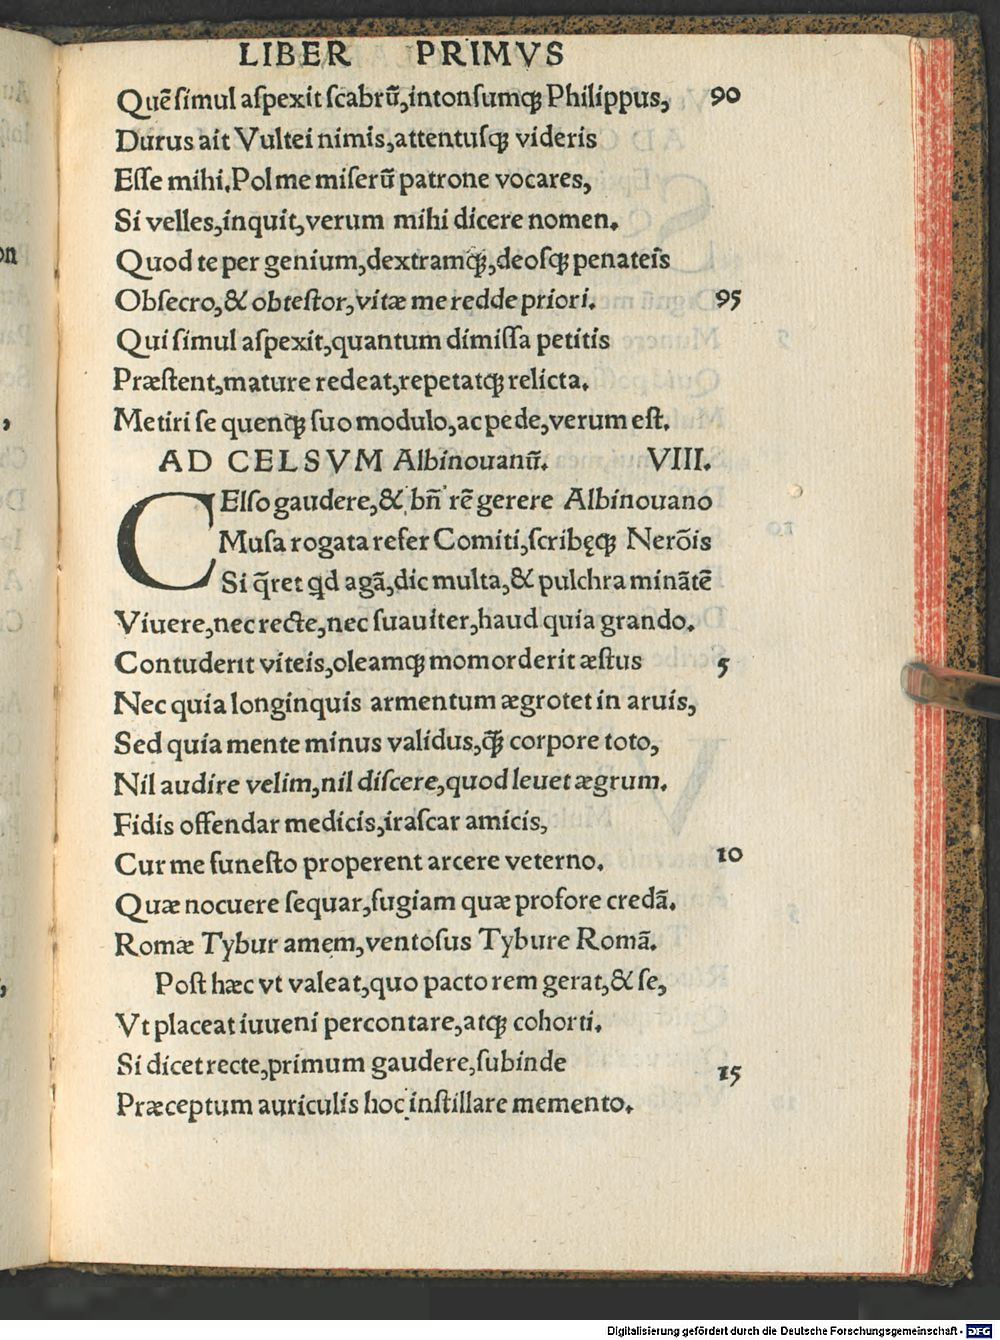 LIBER PRIMVS
Quē ſimul aſpexit ſcabrū, intonſumqȝ Philippus, 90
Durus ait Vultei nimis, attentuſqȝ videris
Eſſe mihi. Pol me miſerū patrone vocares,
Si velles, inquit, verum mihi dicere nomen.
Quod te per genium, dextramqȝ, deoſqȝ penateis
Obſecro, & obteſtor, vitæ me redde priori. 95
Qui ſimul aſpexit, quantum dimiſſa petitis
Præſtent, mature redeat, repetatqȝ relicta.
Metiri ſe quenqȝ ſuo modulo, ac pede, verum eſt.
AD CELSVM Albinouanū. VIII.
CElſo gaudere, & bn̄ rē gerere Albinouano
Muſa rogata refer Comiti, ſcribęqȝ Nerōis
Si q̄ret qd agā, dic multa, & pulchra minātē
Viuere, nec recte, nec ſuauiter, haud quia grando.
Contuderit viteis, oleamqȝ momorderit æſtus 5
Nec quia longinquis armentum ægrotet in aruis,
Sed quia mente minus validus, qȝ̄ corpore toto,
Nil audire velim, nil diſcere, quod leuet ægrum.
Fidis offendar medicis, iraſcar amicis,
Cur me funeſto properent arcere veterno. 10
Quæ nocuere ſequar, fugiam quæ profore credā.
Romæ Tybur amem, ventoſus Tybure Romā.
Poſt hæc vt valeat, quo pacto rem gerat, & ſe,
Vt placeat iuueni percontare, atqȝ cohorti.
Si dicet recte, primum gaudere, ſubinde 15
Præceptum auriculis hoc inſtillare memento.
Digitalisierung gefördert durch die Deutsche Forschungsgemeinschaft - DFG